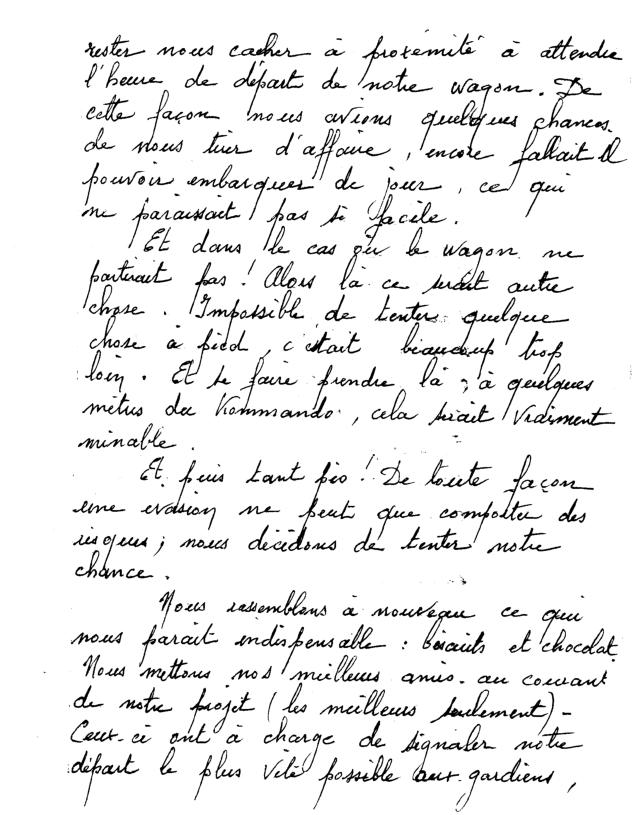 rester nous cacher à proximité à attendre
l'heure de départ de notre wagon. De
cette façon nous avions quelques chances
de nous tirer d'affaire, encore fallait il
pouvoir embarquer de jour, ce qui
ne paraissait pas si facile.
Et dans le cas où le wagon ne
partirait pas ! Alors là ce serait autre
chose. Impossible de tenter quelque
chose à pied, c'était beaucoup trop
loin. Et se faire prendre là, à quelques
mètres du Kommando, cela serait vraiment
minable.
Et puis tant pis ! De toute façon
une evasion ne peut que comporter des
risques ; nous décidons de tenter notre
chance.
Nous rassemblons à nouveau ce qui
nous parait indispensable : biscuits et chocolat.
Nous mettons nos meilleurs amis au courant
de notre projet (les meilleurs seulement) -
Ceux-ci ont à charge de signaler notre
départ le plus vite possible aux gardiens,